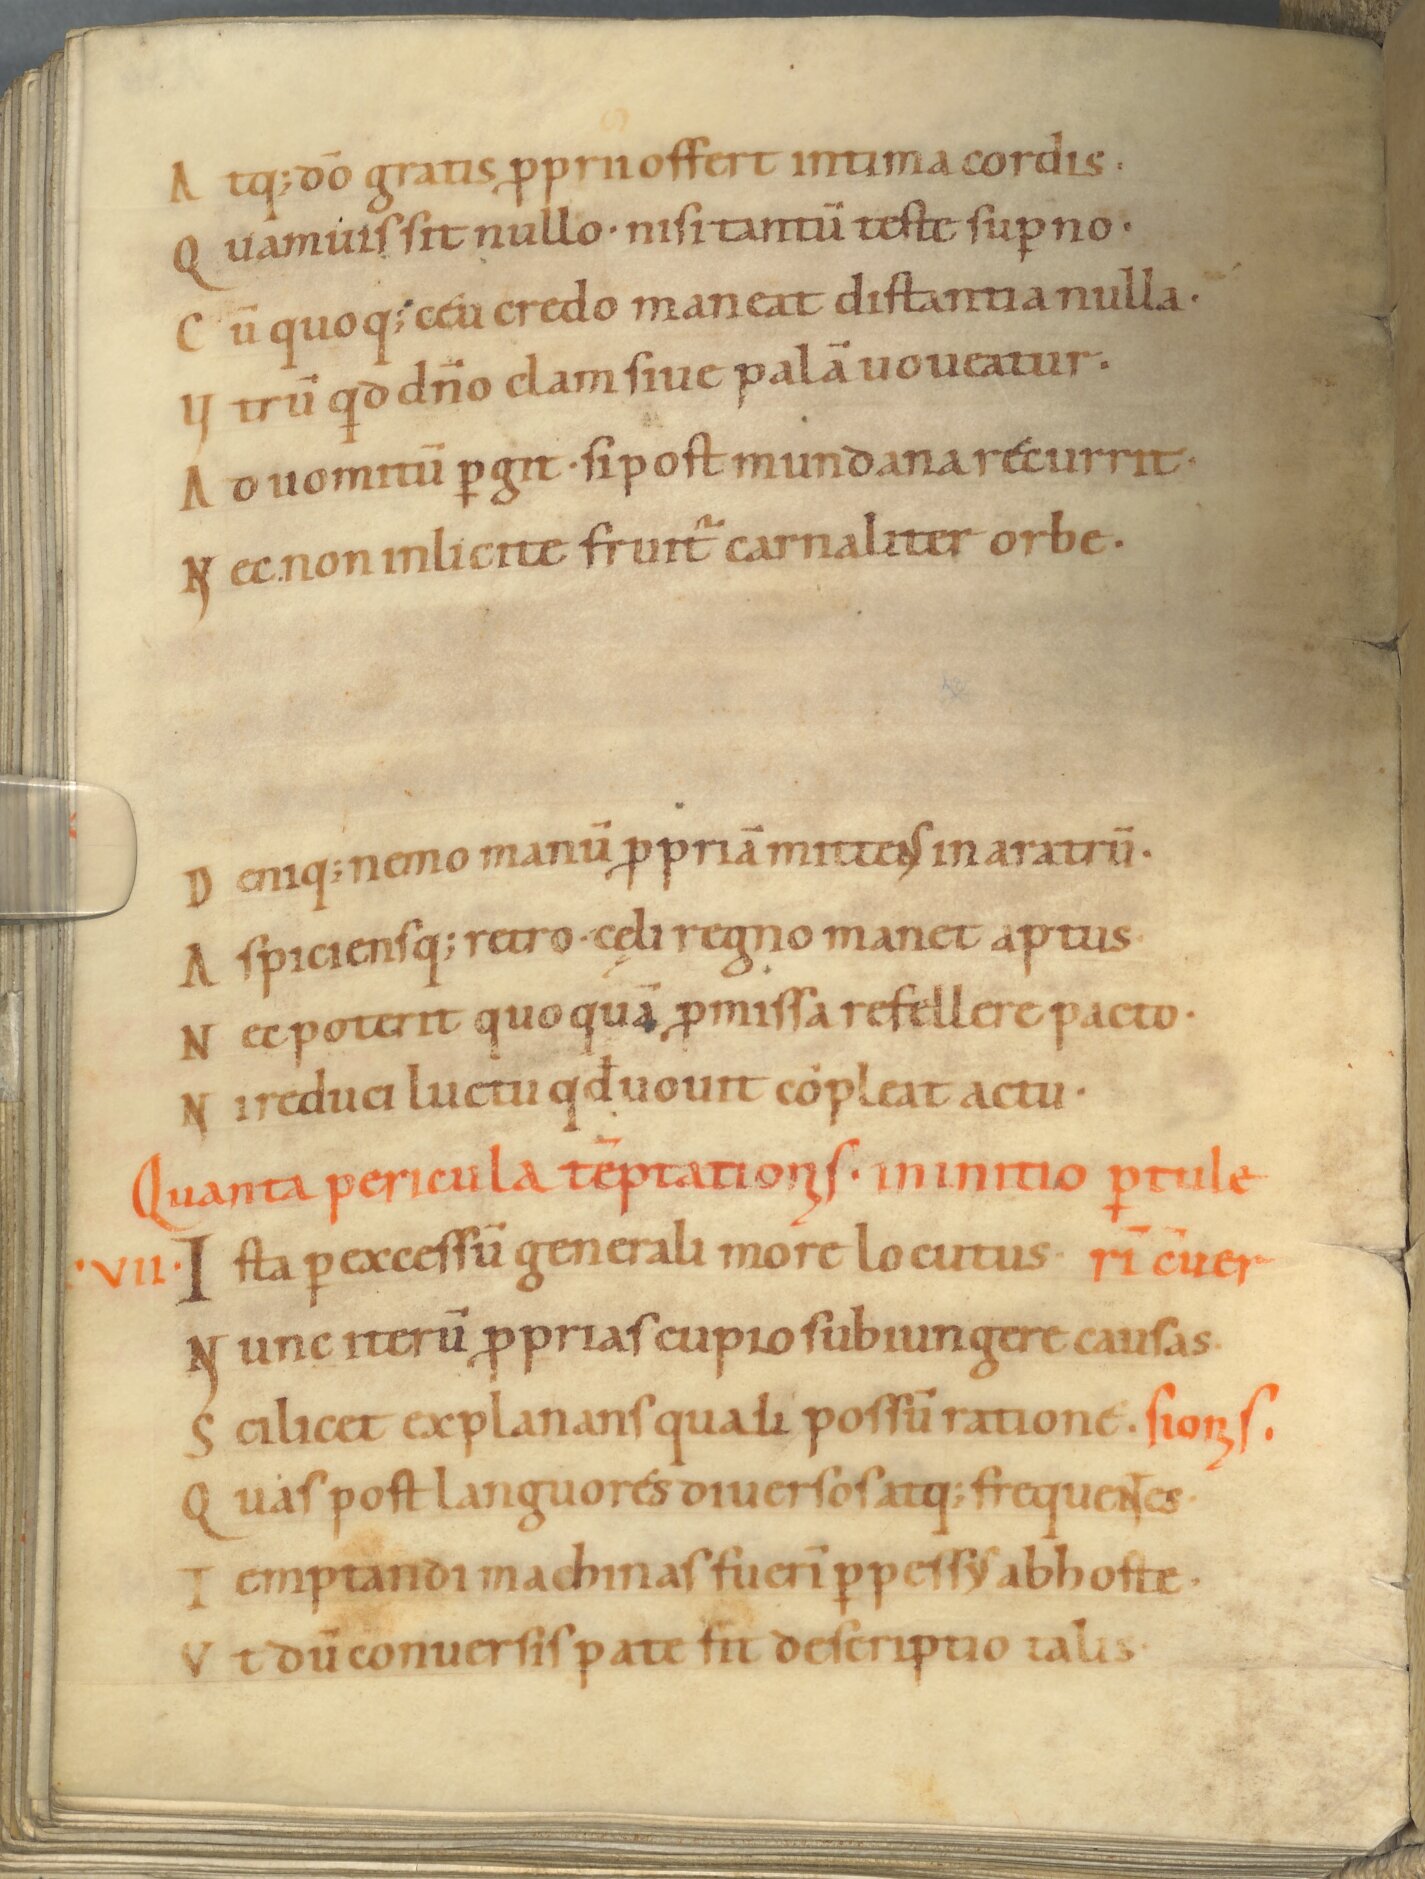 A tq; dō gratis ꝓprii offert intima cordis.
Q uamuis sit nullo · nisi tantū teste suꝑno ·
C ū quoq; ceu credo maneat distantia nulla ·
V trū qd dn̄o clam siue palā uoueatur.
A d uomitū ꝑgit · si post mundana recurrit ·
N ec non inlicite fruit᷑ carnaliter orbe.
D eniq; nemo manū ꝓpriā mittens in aratrū.
A spiciensq; retro · cęli regno manet aptus
N ec poterit quoquā ꝓmissa refellere pacto ·
N i reduci luctu qd uouit cōpleat actu ·
Quanta pericula tēptationis · in initio ꝑtule
·VII· I sta ꝑ excessū generali more locutus · rī cūer
N unc iterū ꝓprias cupio subiungere causas ·
S cilicet explanans quali possū ratione · sionis.
Q uas post languores diuersos atq; frequentes ·
T emptandi machinas fuerī ꝑpessus ab hoste ·
V t dū conuersis patefit descriptio talis ·